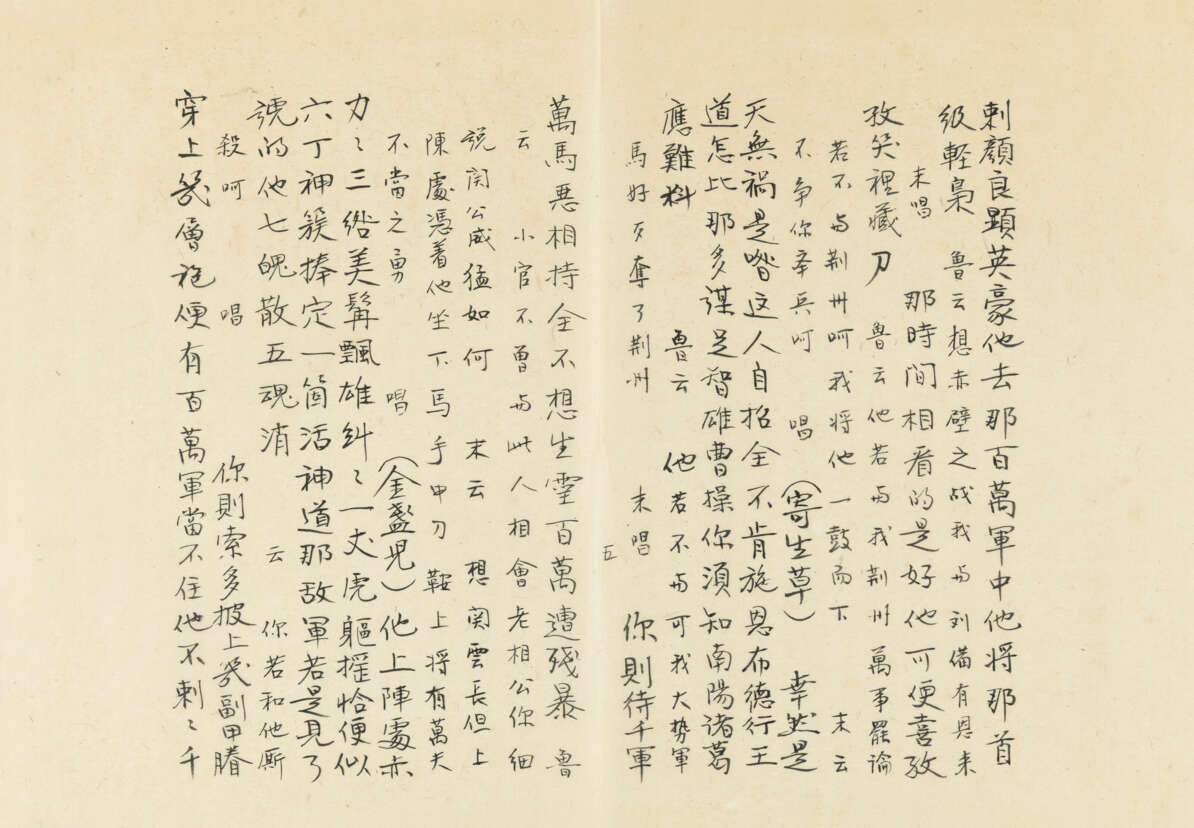 刺顔良顯英豪他去那百萬軍中他將那首
级輕梟 魯云想赤壁之战我与刘備有恩来
末唱 那時間相看的是好他可便喜孜
孜笑裡藏刀 魯云他若与我荆州萬事罷論
若不与荆州呵我将他一鼓而下 末云
不争你举兵呵 唱 (寄生草) 幸然是
天無禍是喒這人自招全不肯施恩布德行王
道怎比那多謀足智雄曹操你須知南陽諸葛
應難料 魯云 他若不与可我大势軍
馬好歹奪了荆州 末唱 你則待千軍
五
萬馬悪相持全不想生靈百萬遭殘暴 魯
云 小官不曾与此人相會老相公你細
説関公威猛如何 末云 想関雲長但上
陳處憑着他坐下馬手中刀鞍上将有萬夫
不當之勇 唱 (金盞児) 他上陣處赤
力〻三绺美髯飄雄糾〻一丈虎軀摇恰便似
六丁神簇捧定一箇活神道那敌軍若是見了
諕的他七魄散五魂消 云 你若和他厮
殺呵 唱 你則索多披上幾副甲賸
穿上幾層袍便有百萬軍當不住他不剌〻千